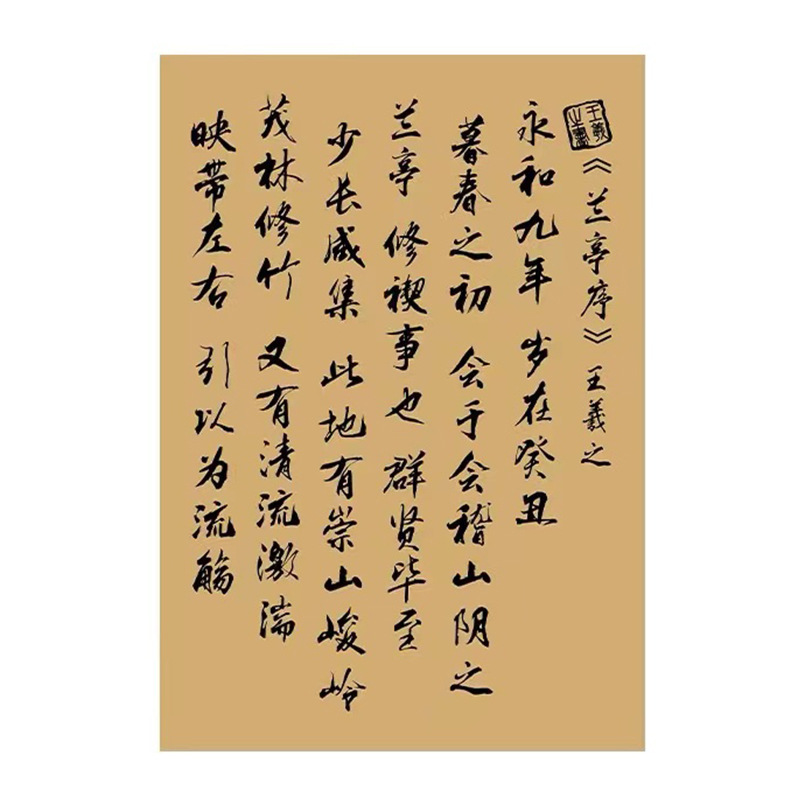 《兰亭序》王羲之
永和九年 岁在癸丑
暮春之初 会于会稽山阴之
兰亭 修禊事也 群贤毕至
少长咸集 此地有崇山峻岭
茂林修竹 又有清流激湍
映带左右 引以为流觞